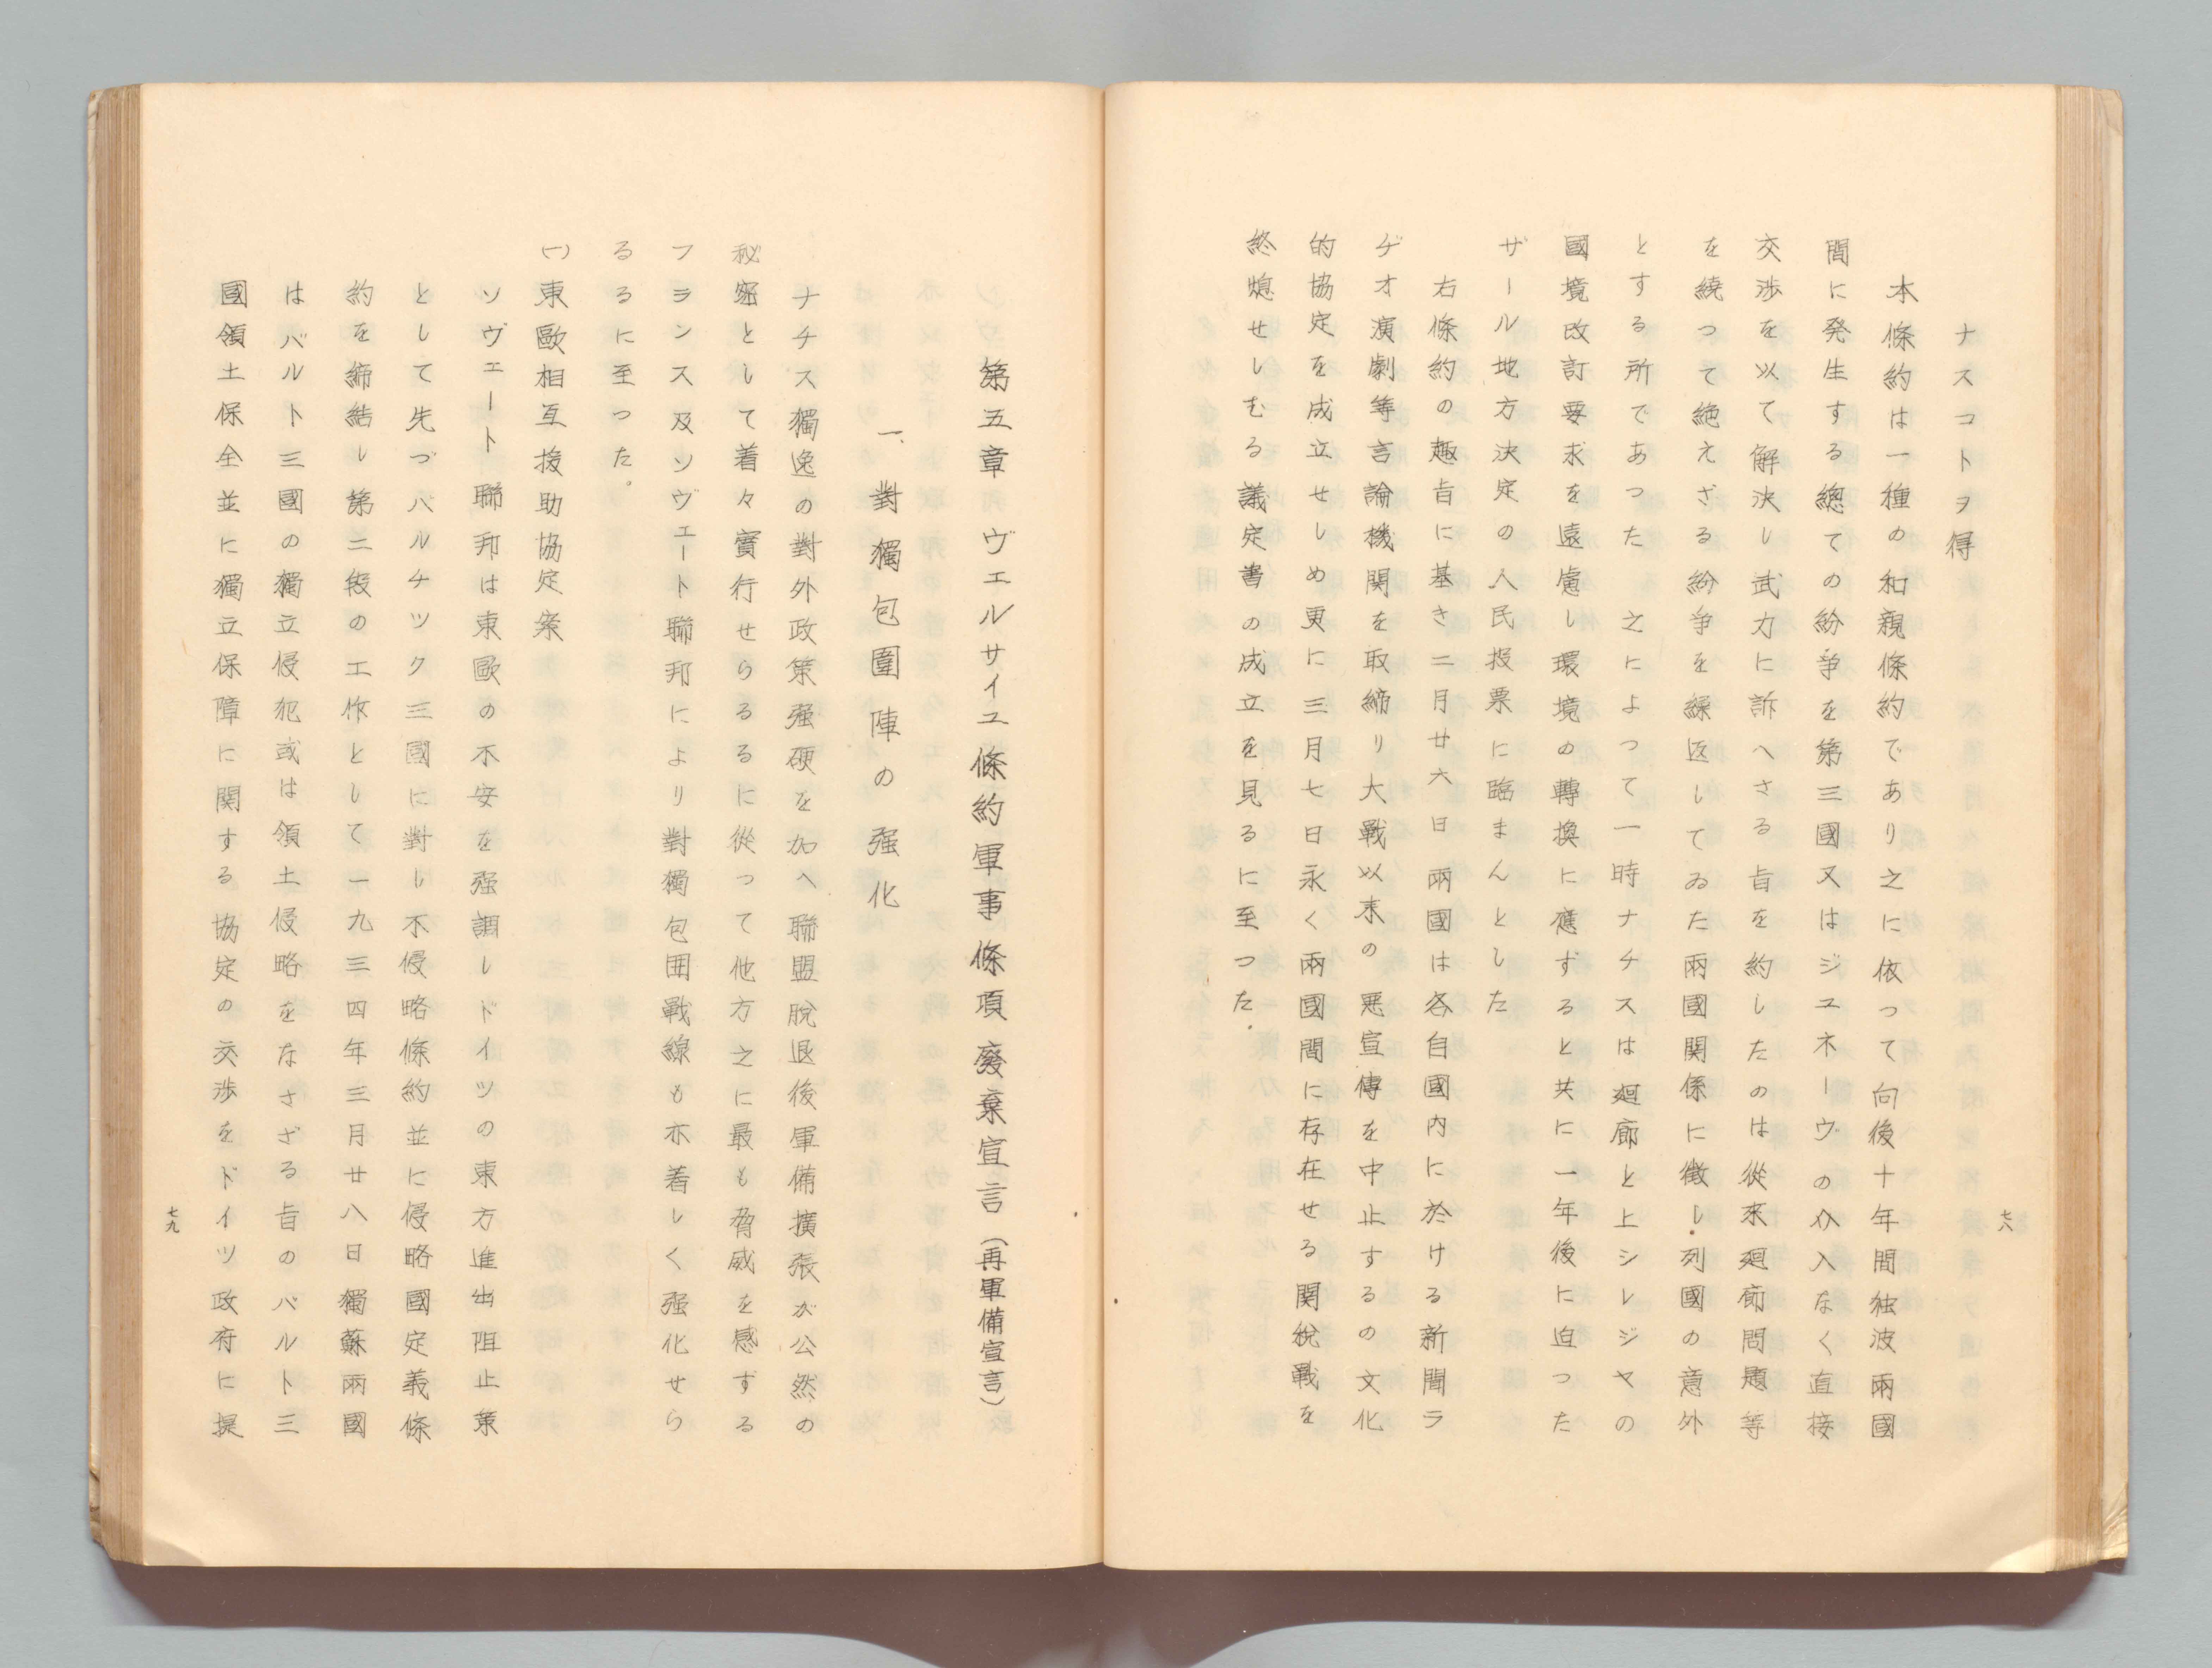 ナスコトヲ得
本條約は一種の和親條約であり之に依って向後十年間独波兩國
間に発生する總ての紛爭を第三國又はジユネーヴの介入なく直接
交渉を以て解決し武力に訴へさる旨を約したのは從來廻廊問題等
を繞つて絶えざる紛争を繰返してゐた兩國関係に徴し.列國の意外
とする所であつた 之によつて一時ナチスは廻廊と上シレジヤの
國境改訂要求を遠慮し環境の轉換に應ずると共に一年後に迫つた
ザール地方決定の人民投票に臨まんとした
右條約の趣旨に基き二月廿六日兩國は各自國内に於ける新聞ラ
ヂオ演劇等言論機関を取締り大戰以来の悪宣傳を中止するの文化
的協定を成立せしめ更に三月七日永く兩國間に存在せる関税戰を
終熄せしむる議定書の成立を見るに至つた.
七八
第五章 ヴェルサイユ條約軍事條項廢棄宣言(再軍備宣言)
一、對獨包圍陣の强化
ナチス獨逸の對外政策强硬を加へ聯盟脫退後軍備擴張が公然の
秘密として着々實行せらるるに從って他方之に最も脅威を感ずる
フランス及ソヴェート聯邦により對獨包囲戰線も亦着しく强化せら
るるに至つた。
(一)東歐相互援助協定案
ソヴェート聯邦は東歐の不安を强調しドイツの東方進出阻止策
として先づバルチック三國に對し不侵略條約並に侵略國定義條
約を締結し第二段の工作として一九三四年三月廿八日獨蘇兩國
はバルト三國の獨立侵犯或は領土侵略をなさざる旨のバルト三
國領土保全並に獨立保障に関する協定の交渉をドイツ政府に提
七九